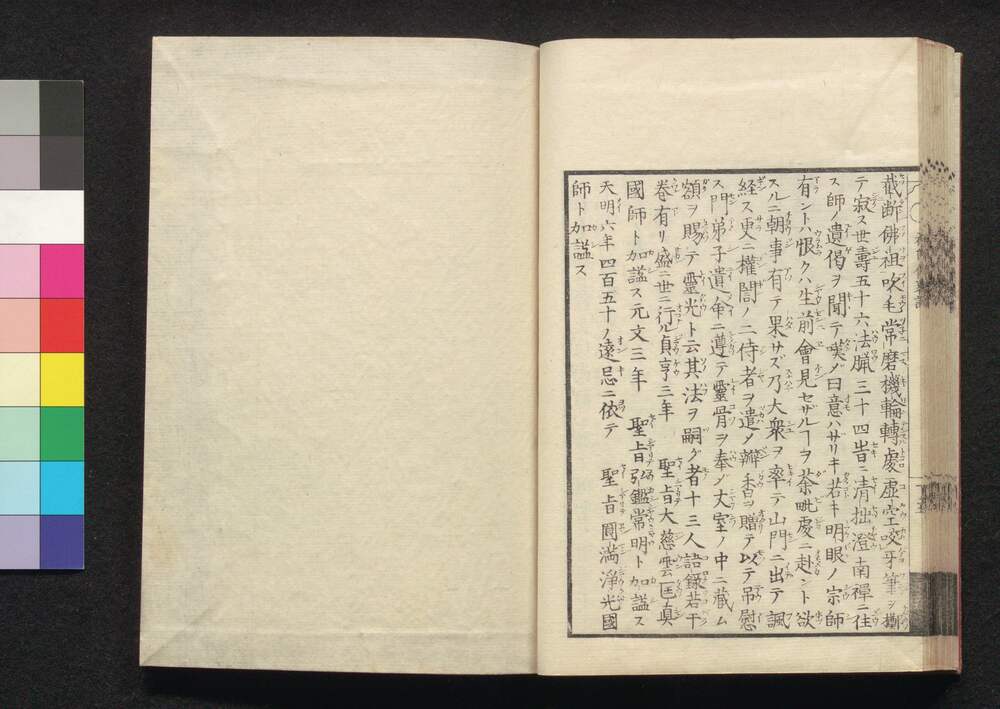 截断佛祖吹毛常磨機輪轉處虚空咬牙筆ヲ擲
テ寂ス世壽五十六法臘三十四旹ニ清拙澄南禪ニ住
ス師ノ遺偈ヲ聞テ嘆メ曰意ハザリキ若キ明眼ノ宗師
有ントハ恨クハ生前會見セザルヿヲ荼毗處ニ赴ント欲
スルニ朝事有テ果サズ乃大衆ヲ率テ山門ニ出テ諷
経ス更ニ權誾ノ二侍者ヲ遣メ瓣香ヲ贈テ以テ吊慰
ス門弟子遺命ニ遵テ靈骨ヲ奉メ丈室ノ中ニ藏ム
額ヲ賜テ靈光ト云其法ヲ嗣グ者十三人語錄若干
卷有リ盛ニ世ニ行ル貞亨三年　聖旨大慈雲匡眞
國師ト加謚ス元文三年　聖旨弘鑑常明ト加謚ス
天明六年四百五十ノ遠忌ニ依テ　聖旨圓滿淨光國
師ト加謚ス